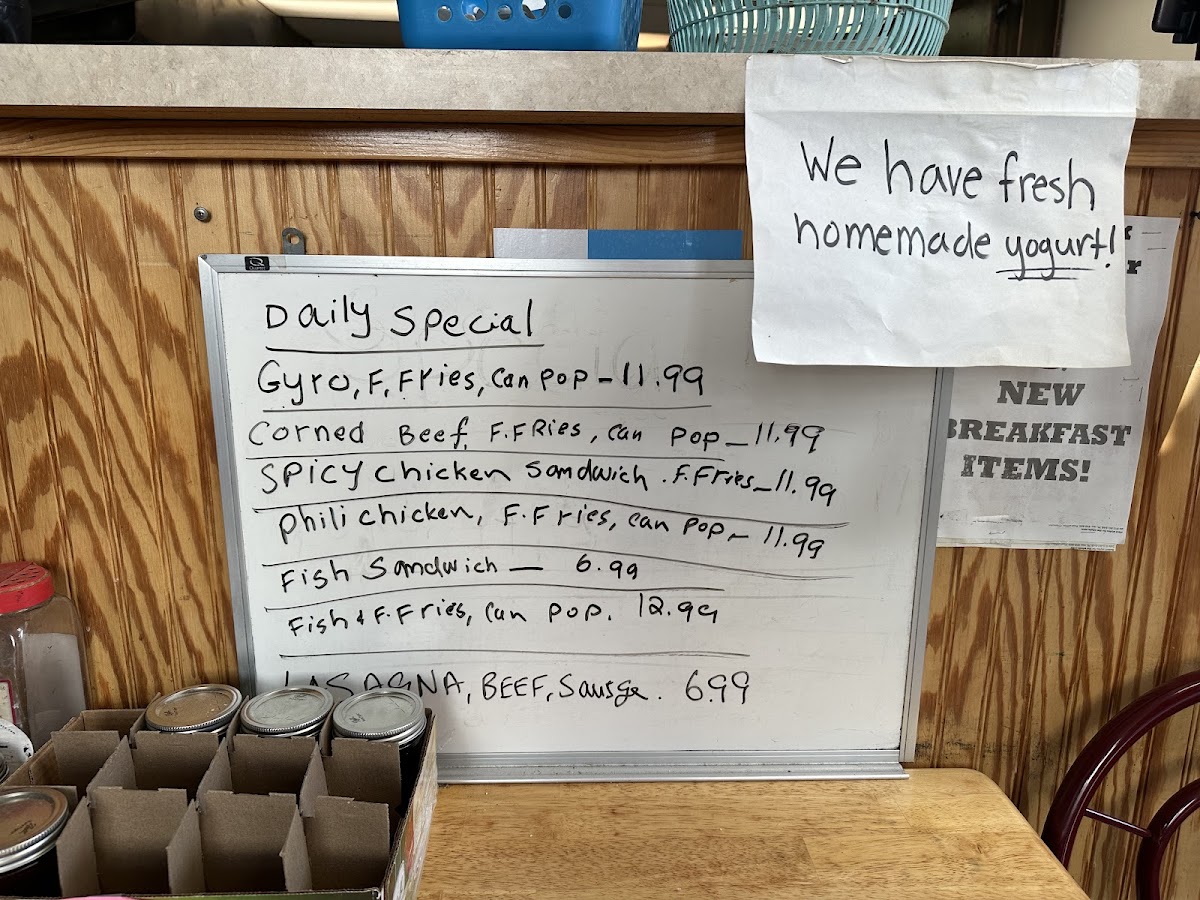 We have fresh
homemade yogurt!
Daily Special
Gyro, F. Fries, Can pop - 11.99
Corned Beef, F.FRies, can pop - 11.99
SPICY Chicken Sandwich. F.Fries - 11.99
Phili chicken, F.Fries, can pop - 11.99
Fish Sandwich — 6.99
Fish & F.Fries, Can pop. 12.99
LASAGNA, BEEF, Sausge. 6.99
NEW
BREAKFAST
ITEMS!